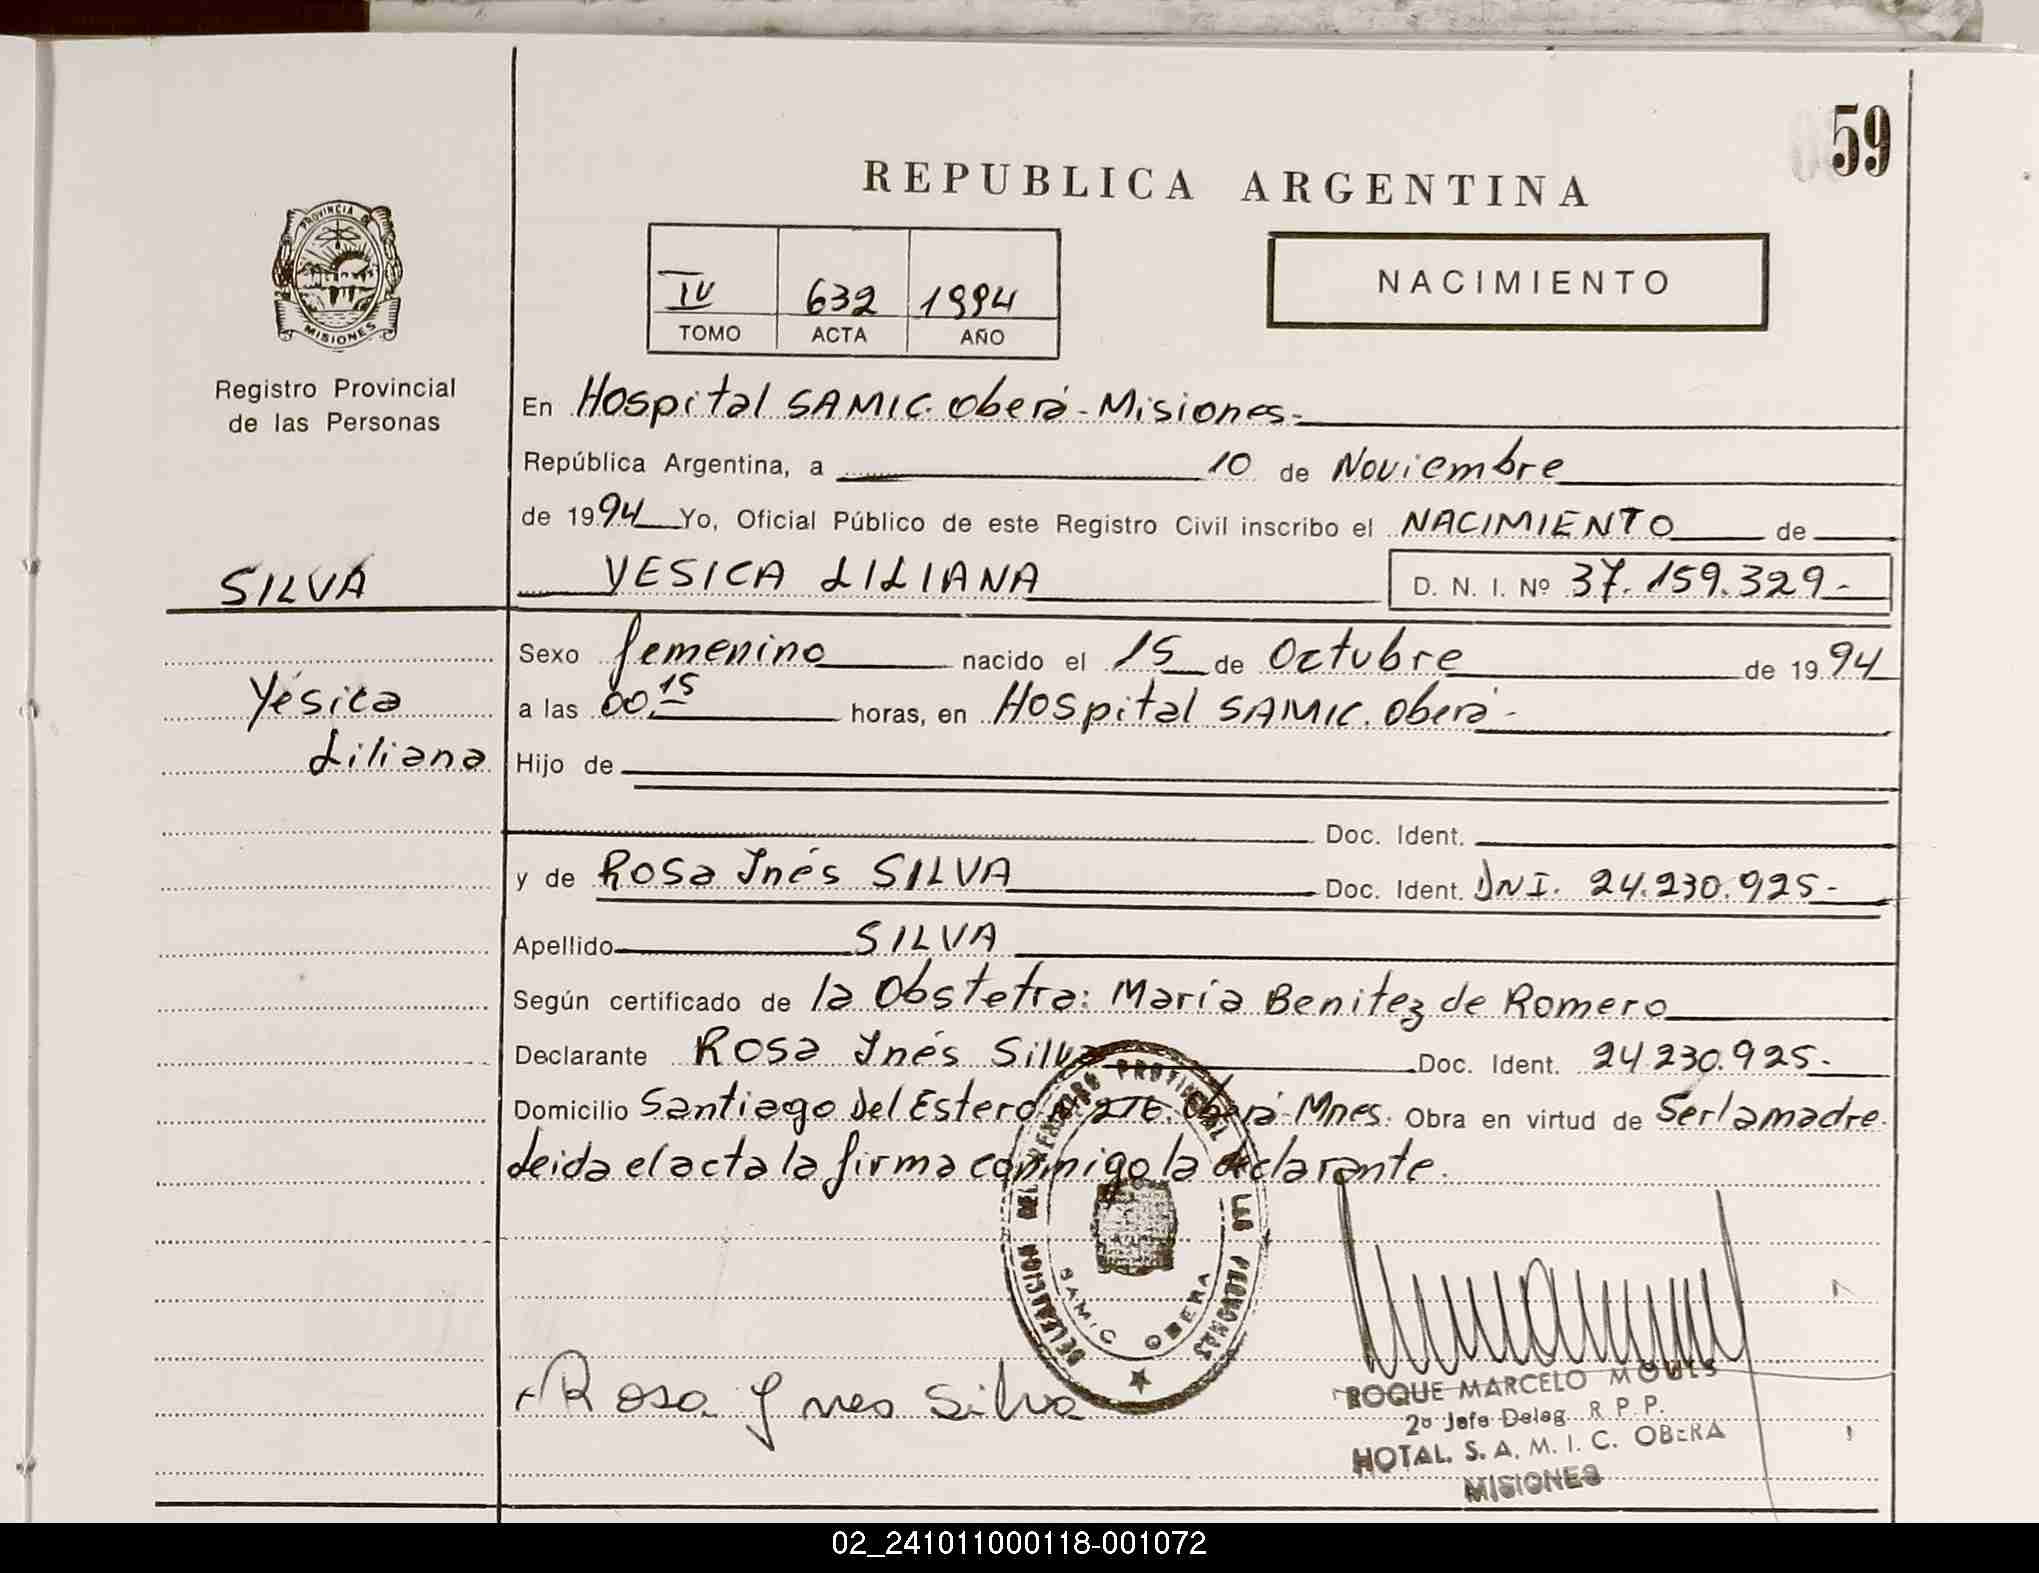 59
REPUBLICA ARGENTINA
PROVINCIA DE
MISIONES
IV 632 1994
TOMO ACTA AÑO
NACIMIENTO
Registro Provincial
de las Personas
En Hospital SAMIC. Oberá - Misiones -
República Argentina, a 10 de Noviembre
de 1994 Yo, Oficial Público de este Registro Civil inscribo el NACIMIENTO de
SILVA
YESICA LILIANA D. N. I. Nº 37.159.329-
Sexo femenino nacido el 15 de Octubre de 1994
Yésica
a las 00,15 horas, en Hospital SAMIC. Oberá -
Liliana
Hijo de
Doc. Ident.
y de Rosa Inés SILVA Doc. Ident. DNI. 24.230.925-
Apellido SILVA
Según certificado de la Obstetra: María Benitez de Romero
Declarante Rosa Inés Silva Doc. Ident. 24.230.925-
Domicilio Santiago Del Estero Oberá-Mnes. Obra en virtud de Ser la madre.
Leida el acta la firma conmigo la declarante.
DELEGACION DEL REGISTRO PROVINCIAL DE LAS PERSONAS
SAMIC OBERA
Rosa Ynes Silva
ROQUE MARCELO
2º Jefe Deleg. R P P.
HOTAL. S. A. M. I. C. OBERA
MISIONES
02_241011000118-001072